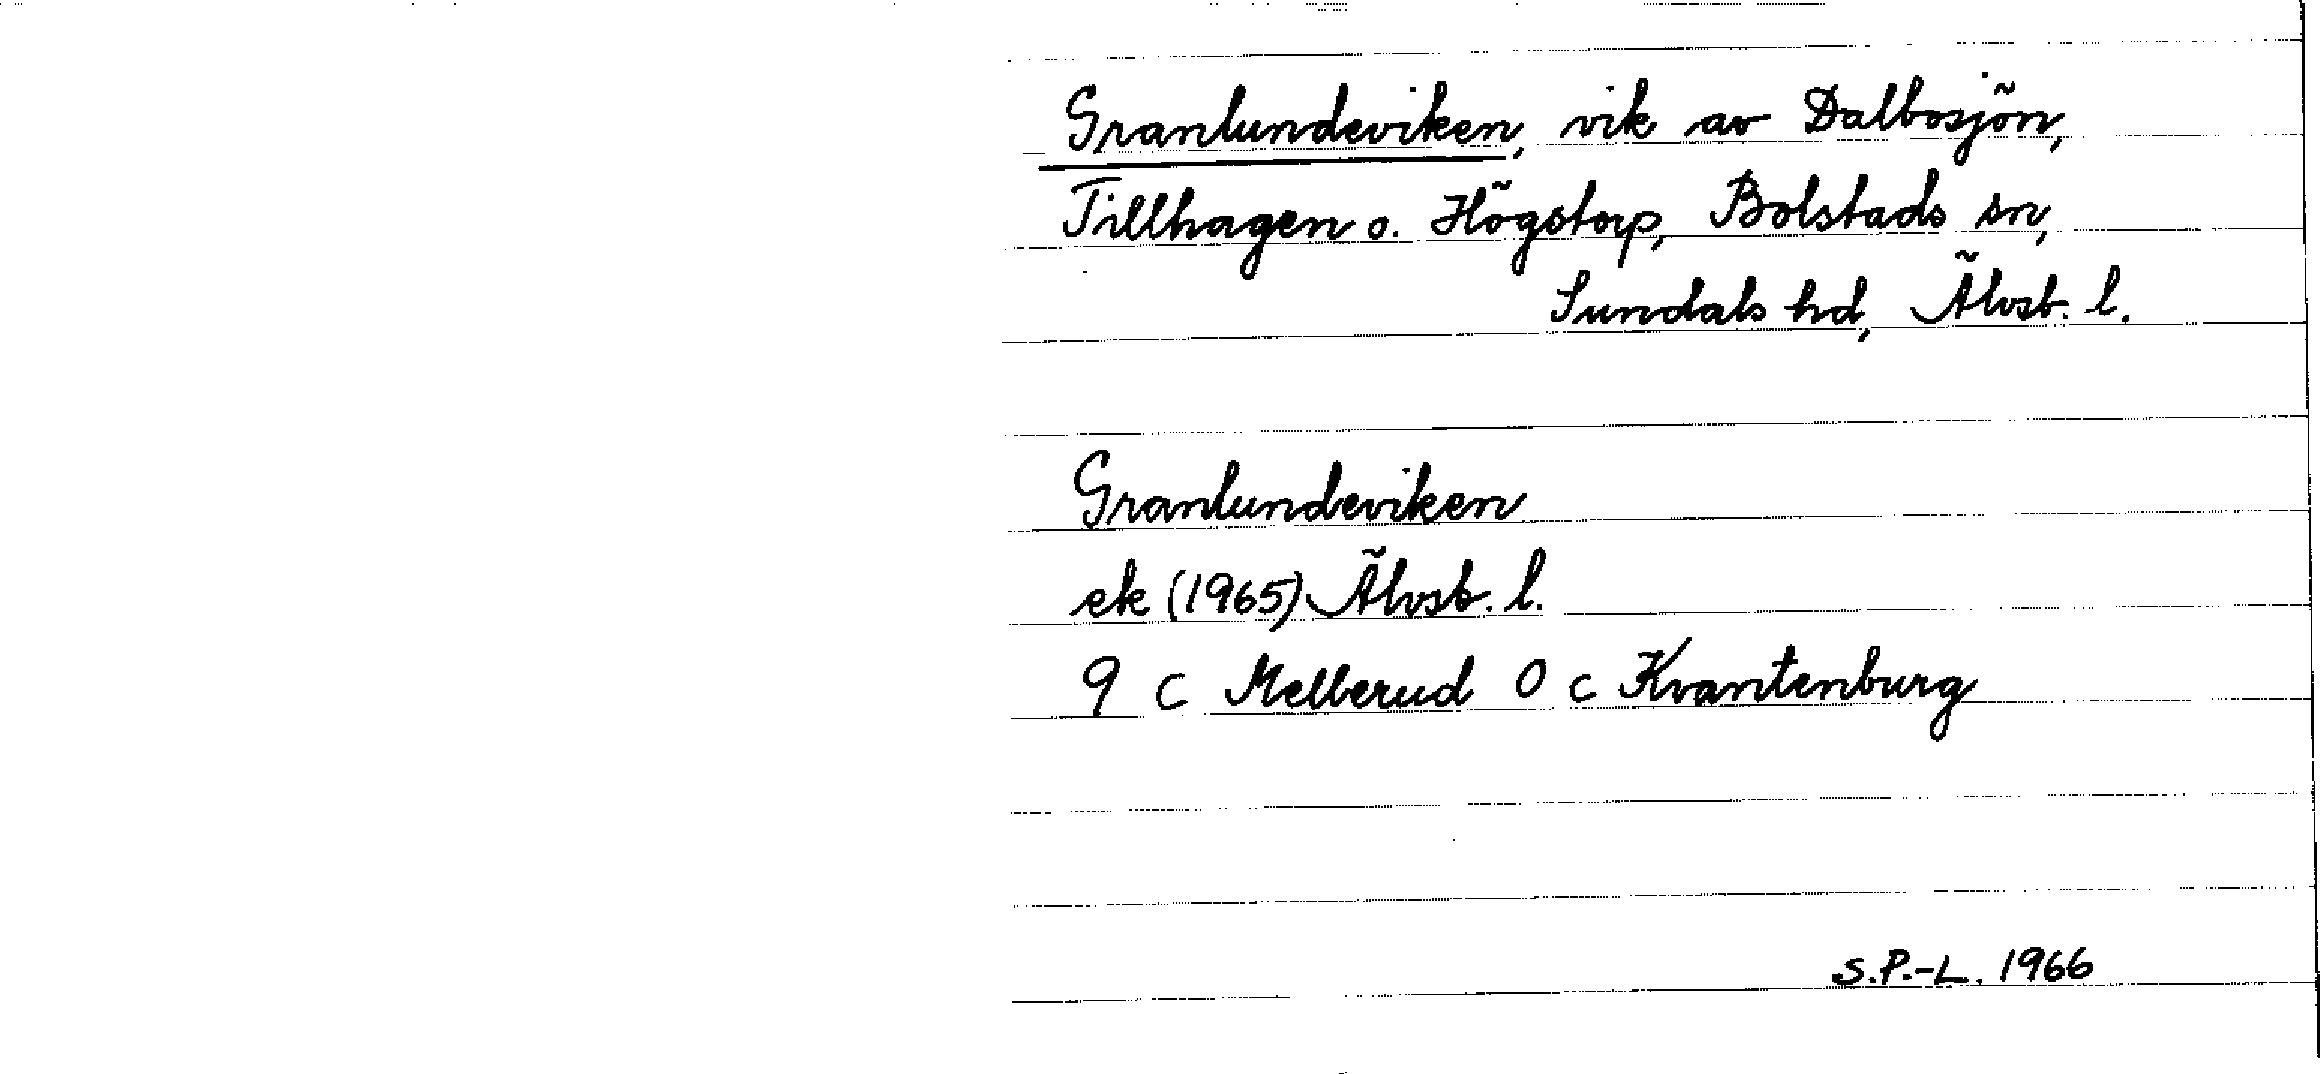 Granlundeviken, vik av Dalbosjön,
Tillhagen o. Högstorp, Bolstads sn,
Sundals hd, Älvsb. l.
Granlundeviken
ek (1965) Älvsb. l.
9 C Mellerud 0 c Kvantenburg
S.P.-L. 1966